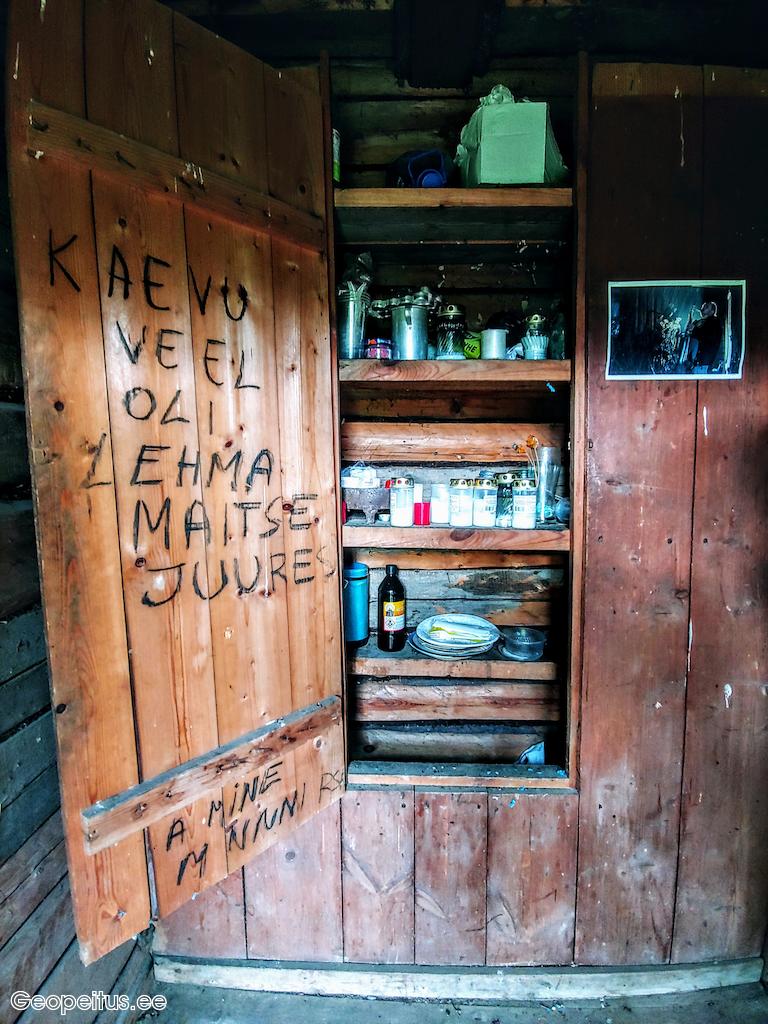 KAEVU
VEEL
OLI
LEHMA
MAITSE
JUURES
A MINE
Geopeitus.ee